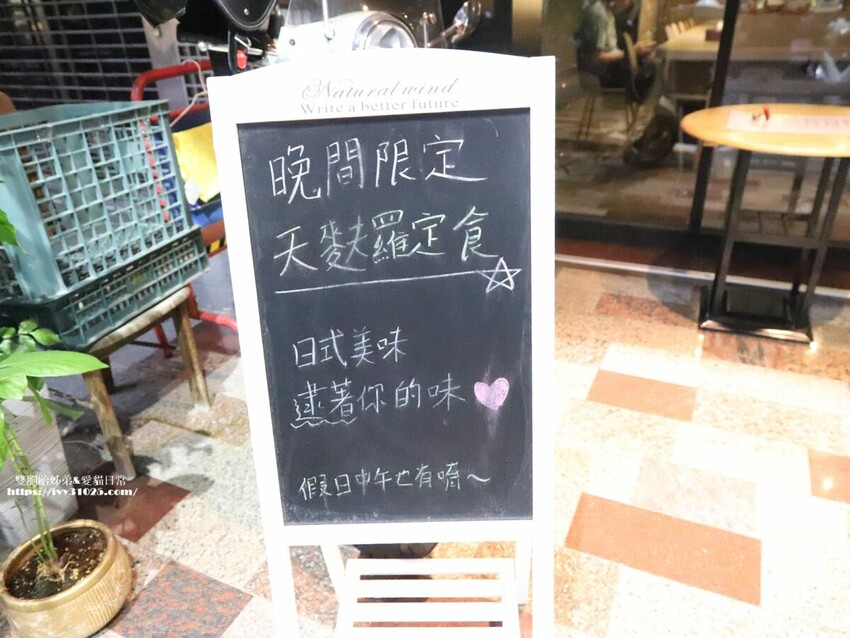 Natural wind
Write a better future
晚間限定
天麩羅定食
日式美味
逮著你的味
假日中午也有唷~
雙胞胎姊弟&愛貓日常
https://ivy31025.com/